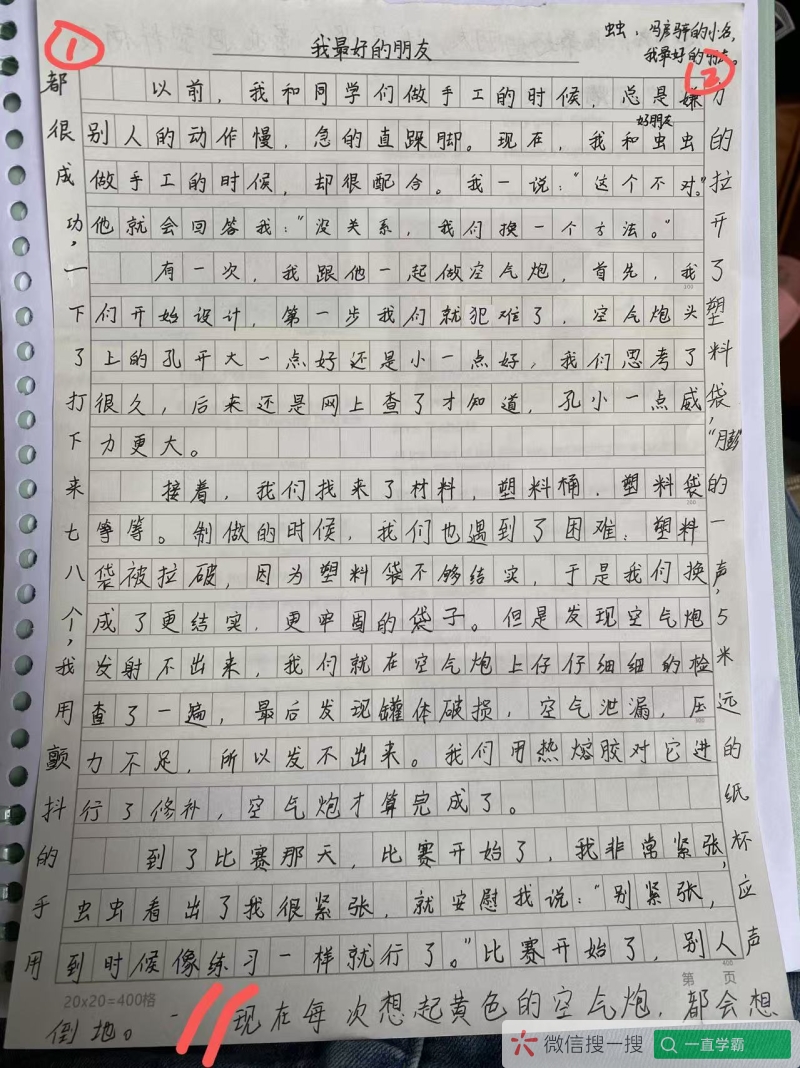 我最好的朋友
虫虫：冯的小名，
我最好的朋友。
以前，我和同学们做手工的时候，总是嫌
别人的动作慢，急的直跺脚。现在，我和好朋友虫虫
做手工的时候，却很配合。我一说：“这个不对。”
他就会回答我：“没关系，我们换一个方法。”
有一次，我跟他一起做空气炮，首先，我
们开始设计，第一步我们就犯难了，空气炮头
上的孔开大一点好还是小一点好，我们思考了
很久，后来还是网上查了才知道，孔小一点威
力更大。
接着，我们找来了材料，塑料桶，塑料袋
等等。制做的时候，我们也遇到了困难：塑料
袋被拉破，因为塑料袋不够结实，于是我们换
成了更结实，更牢固的袋子。但是发现空气炮
发射不出来，我们就在空气炮上仔仔细细的检
查了一遍，最后发现罐体破损，空气泄漏，压
力不足，所以发不出来。我们用热熔胶对它进
行了修补，空气炮才算完成了。
到了比赛那天，比赛开始了，我非常紧张，
虫虫看出了我很紧张，就安慰我说：“别紧张，
到时候像练习一样就行了。”比赛开始了，别人
①
都很成功，一下了打下来七八个，我用颤抖的手用
②
力的拉开了塑料袋，“膨”的一声，5米远的纸杯应声
倒地。
现在每次想起黄色的空气炮，都会想
20x20=400格
第 页
200
300
400
微信搜一搜
一直学霸